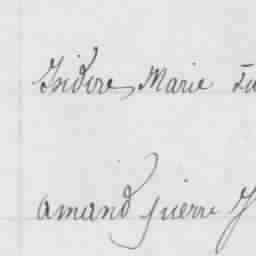 Isidore Marie
Amand pierre